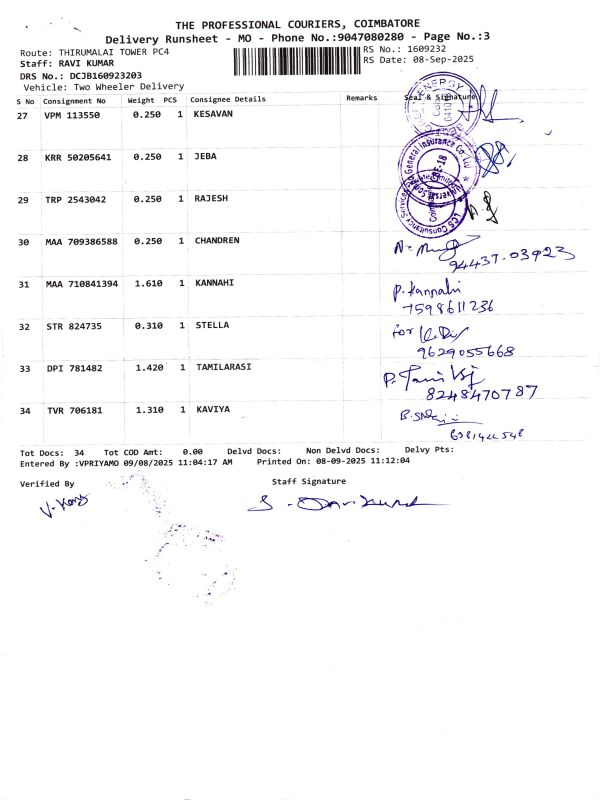 THE PROFESSIONAL COURIERS, COIMBATORE
Delivery Runsheet - MO - Phone No.:9047080280 - Page No.:3
Route: THIRUMALAI TOWER PC4 RS No.: 1609232
Staff: RAVI KUMAR RS Date: 08-Sep-2025
DRS No.: DCJB160923203
Vehicle: Two Wheeler Delivery
S No Consignment No Weight PCS Consignee Details Remarks Seal & Signature
27 VPM 113550 0.250 1 KESAVAN
28 KRR 50205641 0.250 1 JEBA
General Insurance Co. Ltd
29 TRP 2543042 0.250 1 RAJESH
LCS Consultancy Services
30 MAA 709386588 0.250 1 CHANDREN
94437.03923
31 MAA 710841394 1.610 1 KANNAHI P. Kannahi
7598611236
32 STR 824735 0.310 1 STELLA for
9629055668
33 DPI 781482 1.420 1 TAMILARASI
8248470787
34 TVR 706181 1.310 1 KAVIYA
Tot Docs: 34 Tot COD Amt: 0.00 Delvd Docs: Non Delvd Docs: Delvy Pts:
Entered By :VPRIYAMO 09/08/2025 11:04:17 AM Printed On: 08-09-2025 11:12:04
Verified By Staff Signature